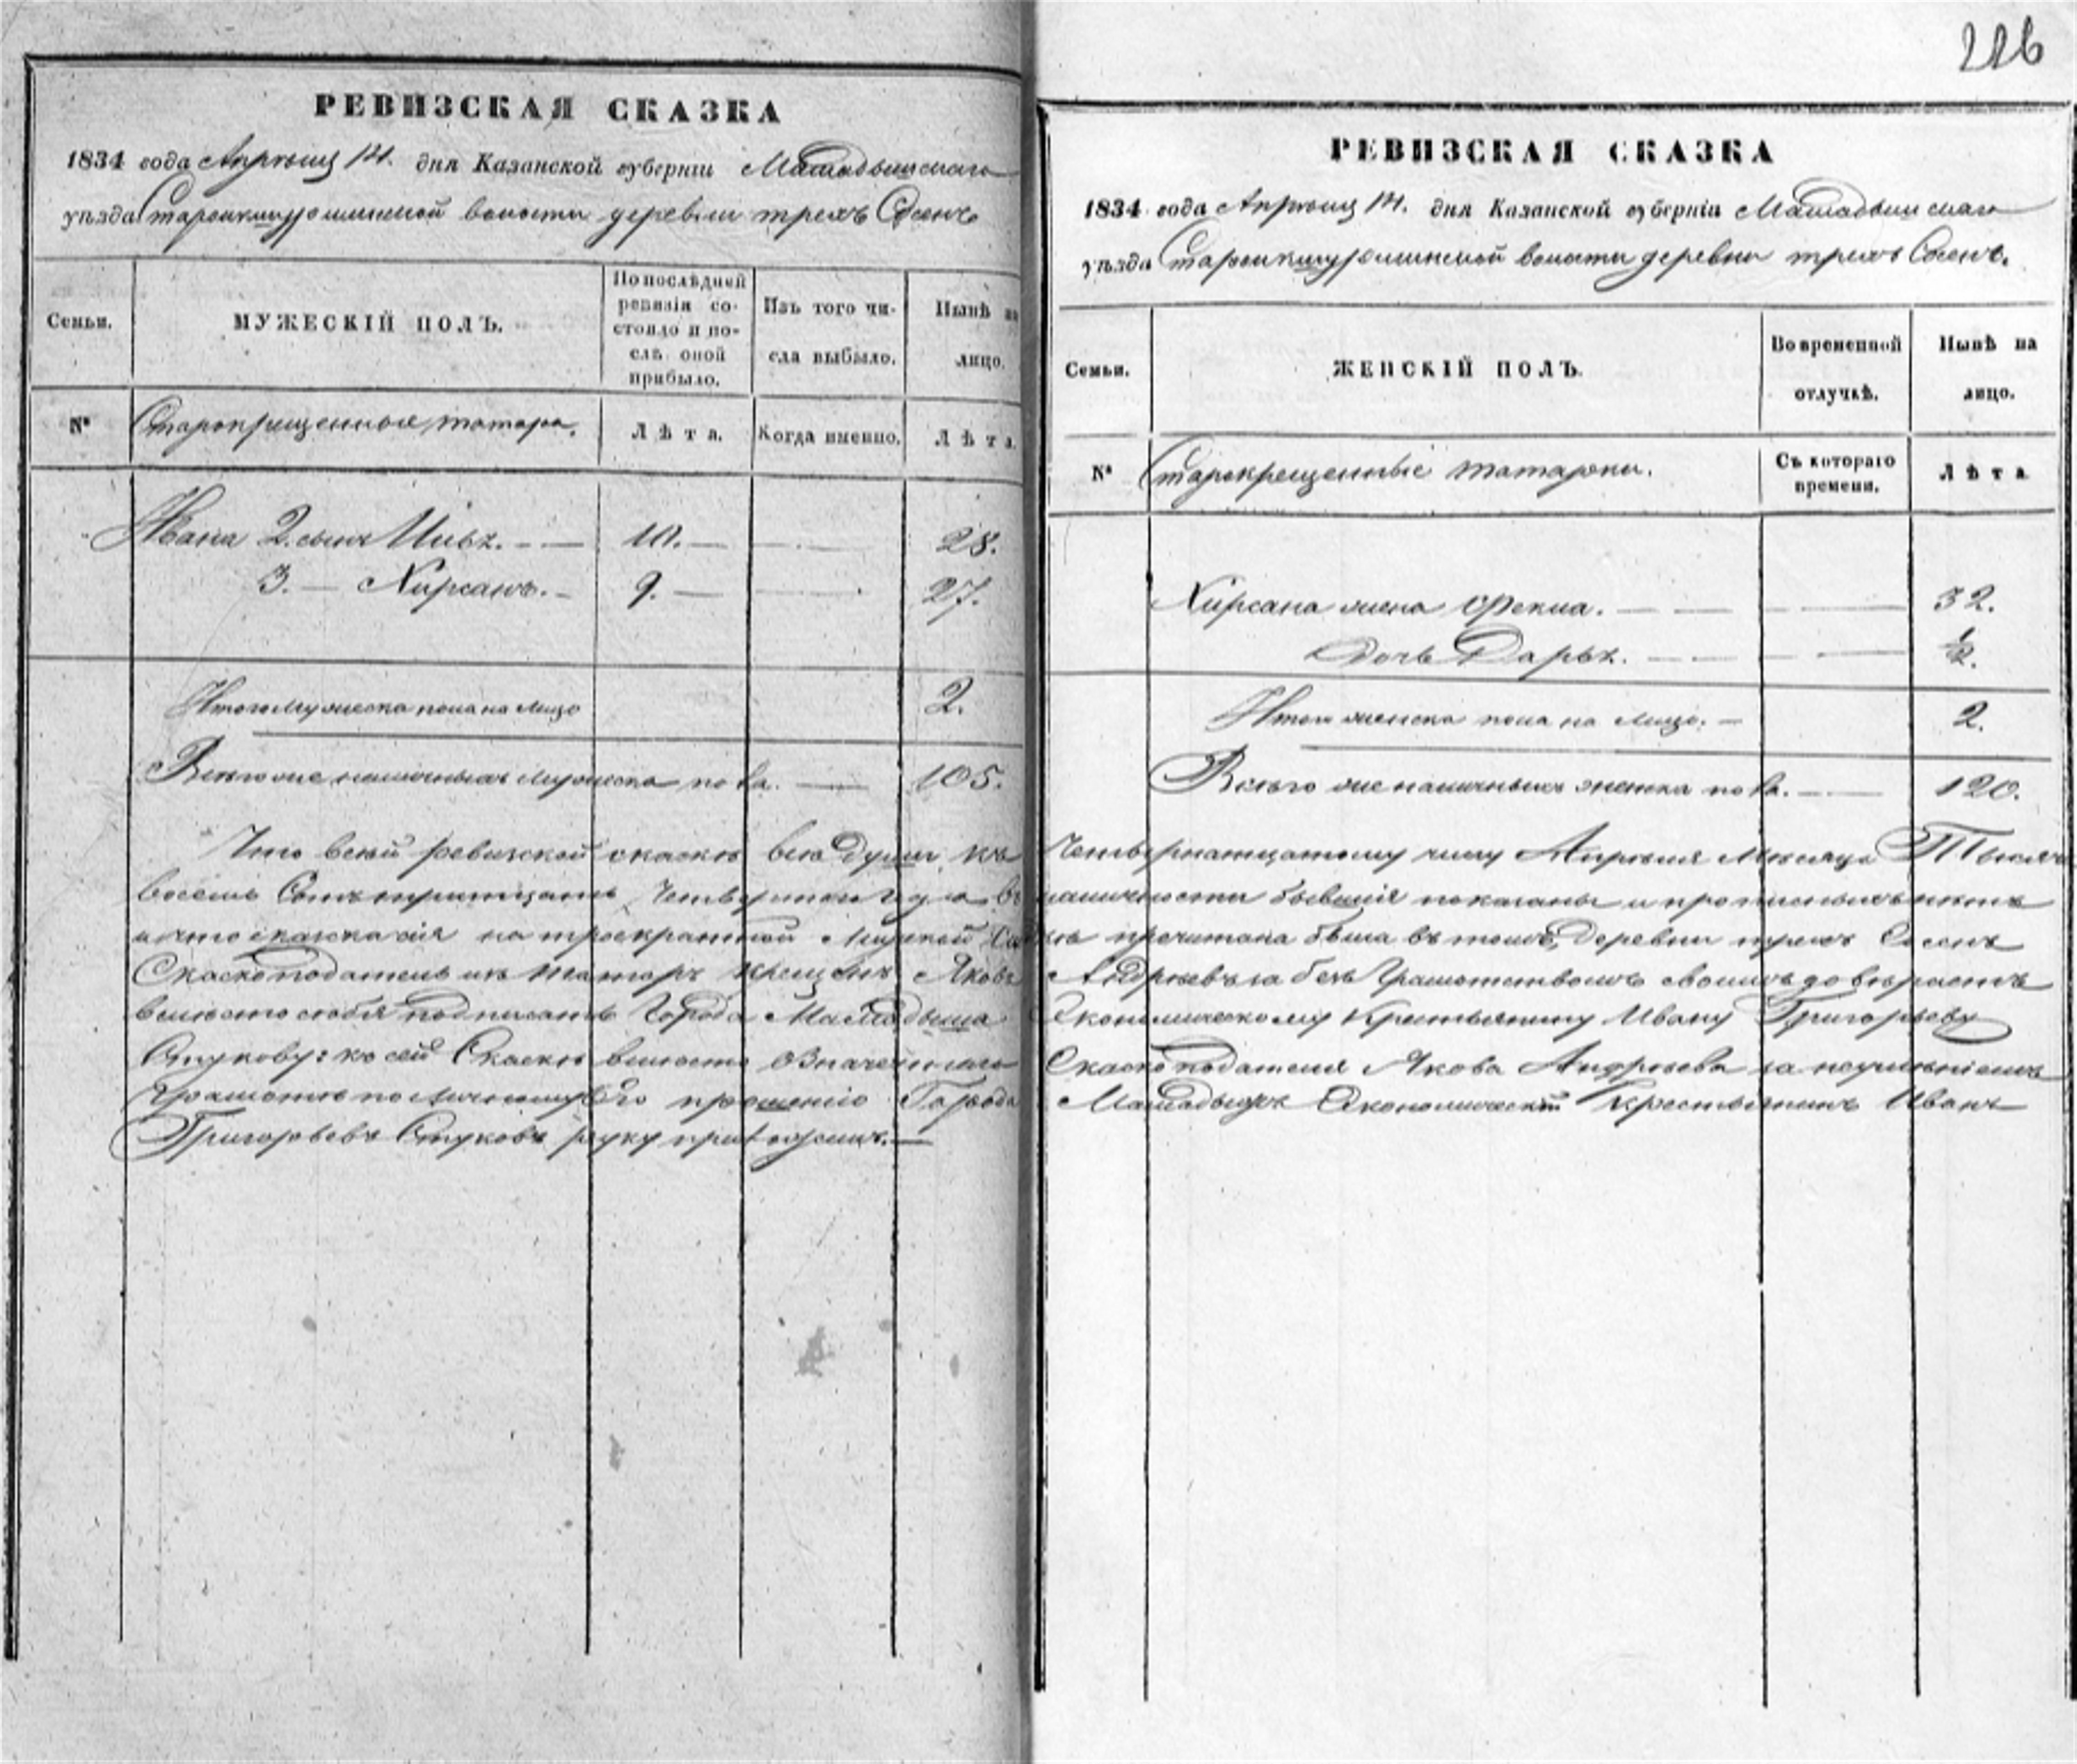 226
РЕВИЗСКАЯ СКАЗКА
1834 года Апрѣля 14. дня Казанской губерніи Мамадышскаго
уѣзда волости деревни трехъ Сосенъ
Семьи.
МУЖЕСКІЙ ПОЛЪ.
По послѣдней ревизіи состояло и послѣ оной прибыло.
Изъ того числа выбыло.
Нынѣ на лицо.
№
Старокрещенныя татара.
Лѣта.
Когда именно.
Лѣта.
Ивана 2. сынъ Илья. 10. 28.
3. — Хирсанъ. 9. 27.
Итого мужеска пола на лицо 2.
Всего же наличныхъ мужеска пола. 105.
РЕВИЗСКАЯ СКАЗКА
1834 года Апрѣля 14. дня Казанской губерніи Мамадышскаго
уѣзда волости деревни трехъ Сосенъ.
Семьи.
ЖЕНСКІЙ ПОЛЪ.
Во временной отлучкѣ.
Нынѣ на лицо.
№
Старокрещенные татарки.
Съ котораго времени.
Лѣта
Хирсана жена Фекла. 32.
дочь Дарья. ½.
Итого женска пола на лицо. 2.
Всего же наличныхъ женска пола. 120.
Что въ сей ревизской сказкѣ всѣ души къ Четырнатцатому числу Апрѣля Мѣсяца Тысяча
восемь Сотъ тритцать Четвертаго Года въ наличности бывшія показаны и прописныхъ нѣтъ
и что сказка сія на троекратной Мирской прочитана была въ томъ, деревни трехъ Сосенъ
Сказкоподатель изъ татаръ крещенъ Яковъ Андрѣевъ за безъ Грамотствомъ своимъ довѣряетъ
вмѣсто себя подписать Города Мамадыша Экономическому Крестьянину Ивану Григорьеву
Стукову: къ сей Сказкѣ вмѣсто означеннаго Сказкоподателя Якова Андрѣева за неумѣніемъ
Грамотѣ по личному Его прошенію Города Мамадыша Экономическій Крестьянинъ Иванъ
Григорьевъ Стуковъ руку приложилъ.